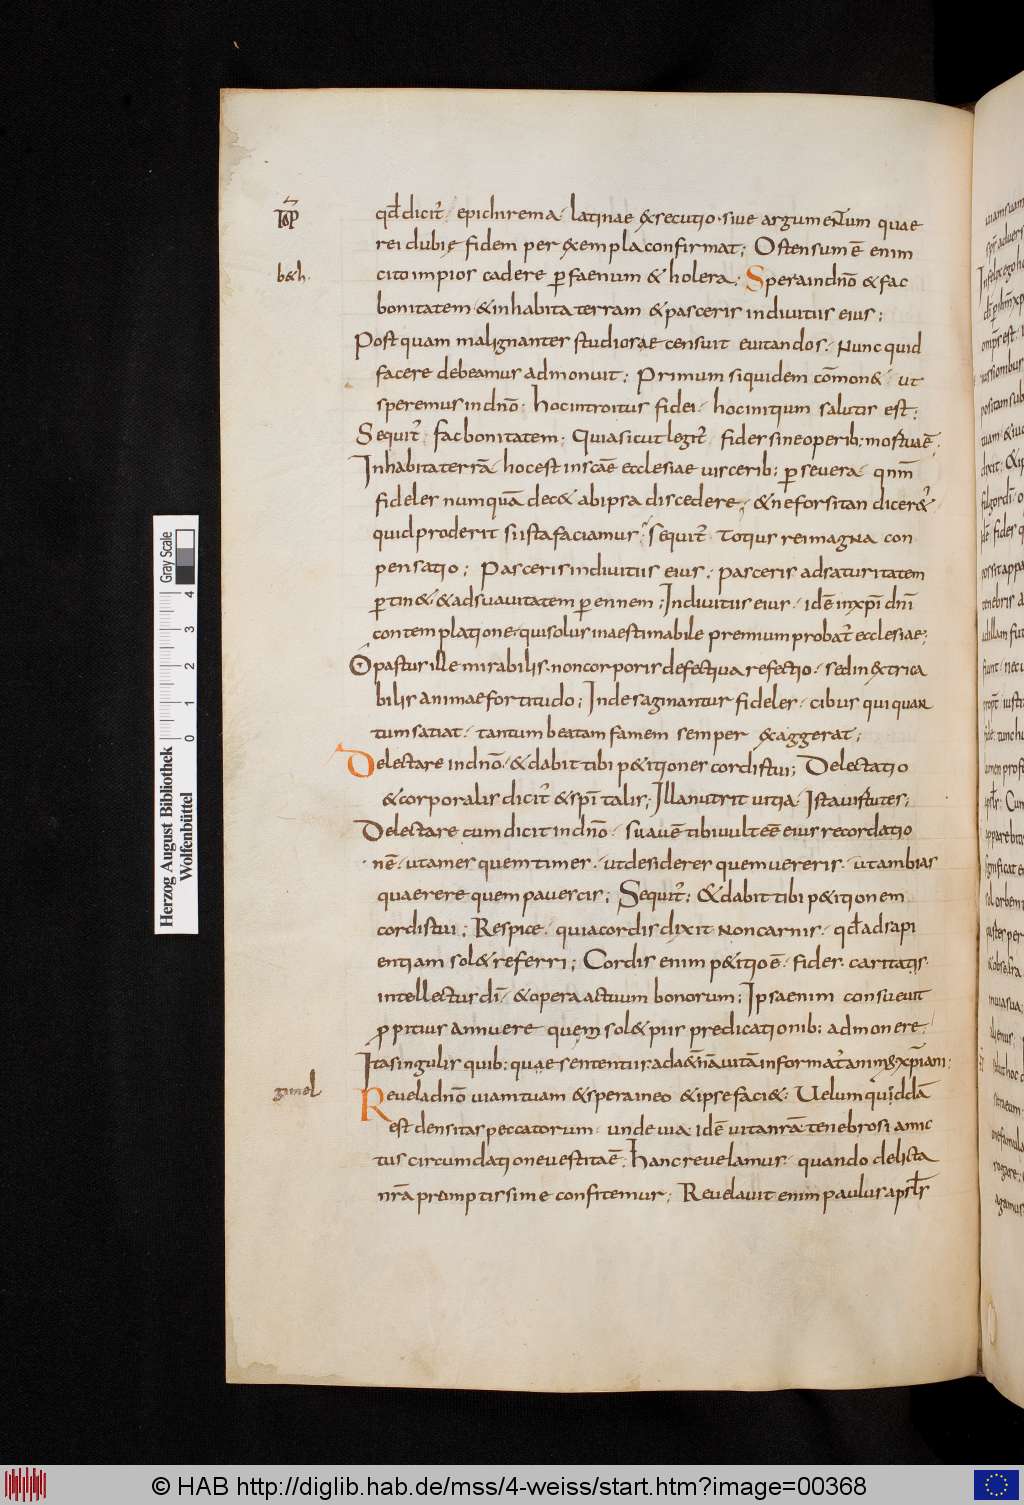 qđ dicit̃. epichirema. latinae exsecutio. siue argumentum quae
rei dubię fidem per exempla confirmat; Ostensum ē enim
beth.
cito impios cadere ꝑ faenum & holera. Spera in dnō & fac
bonitatem. & inhabita terram & pasceris in diuitiis eius;
Postquam malignanter studiosae censuit euitandos. Nunc quid
facere debeamus admonuit; Primum siquidem cōmon&. ut
speremus in dnō. hoc introitus fidei. hoc initium salutis est;
Sequit̃. fac bonitatem. Quia sicut legit̃. fides sine operib; mortua ē.
Inhabita terrā. hoc est in scāe ecclesiae uiscerib; ꝑseuera. qnm̄
fideles numquā dec& ab ipsa discedere. & ne forsitan dicer&.
quid proderit si ista faciamus. sequit̃ totius rei magna con
pensatio; Pasceris in diuitiis eius; pasceris ad saturitatem
ꝑtin&. & ad suauitatem perennem; In diuitiis eius. idē in xpī dnī
contemplatione. qui solus inaestimabile premium probat̃ ecclesiae;
O pastus ille mirabilis. non corporis defectiua refectio. sed inextrica
bilis animae fortitudo; Inde saginantur fideles. cibus qui quan
tum satiat. tantum beatam famem semper exaggerat;
Delectare in dnō. & dabit tibi p&itiones cordis tui; Delectatio
& corporalis dicit̃ & spī talis; Illa nutrit uitia. Ista uirtutes;
Delectare cum dicit in dnō. suauē tibi uult eē eius recordatio
nē. ut ames quem times. ut desideres quem uereris. ut ambias
quaerere quem pauescis; Sequit̃; & dabit tibi p&itionem
cordis tui; Respice. quia cordis dixit non carnis. qđ ad sapi
entiam sol& referri; Cordis enim p&itio ē. fides. caritatis.
intellectus dī. & opera actuum bonorum; Ipsa enim consueuit
ꝓpitius annuere quem sol& piis predicationib; admonere.
Ita singulis quib; quae sententiis ad aet̄nā uitā informat̃ animę xp̄iani.
gimel
Reuela dnō uiam tuam & spera in eo & ipse faci&. Uelum quiddā
est densitas peccatorum. unde uia idē uita nr̄a tenebrosi amic
tus circumdatione uestita ē. Hanc reuelamus. quando delicta
nr̄a promptissime confitemur; Reuelauit enim paulus apsl̄s
Herzog August Bibliothek
Wolfenbüttel
0 1 2 3 4
Gray Scale
© HAB http://diglib.hab.de/mss/4-weiss/start.htm?image=00368